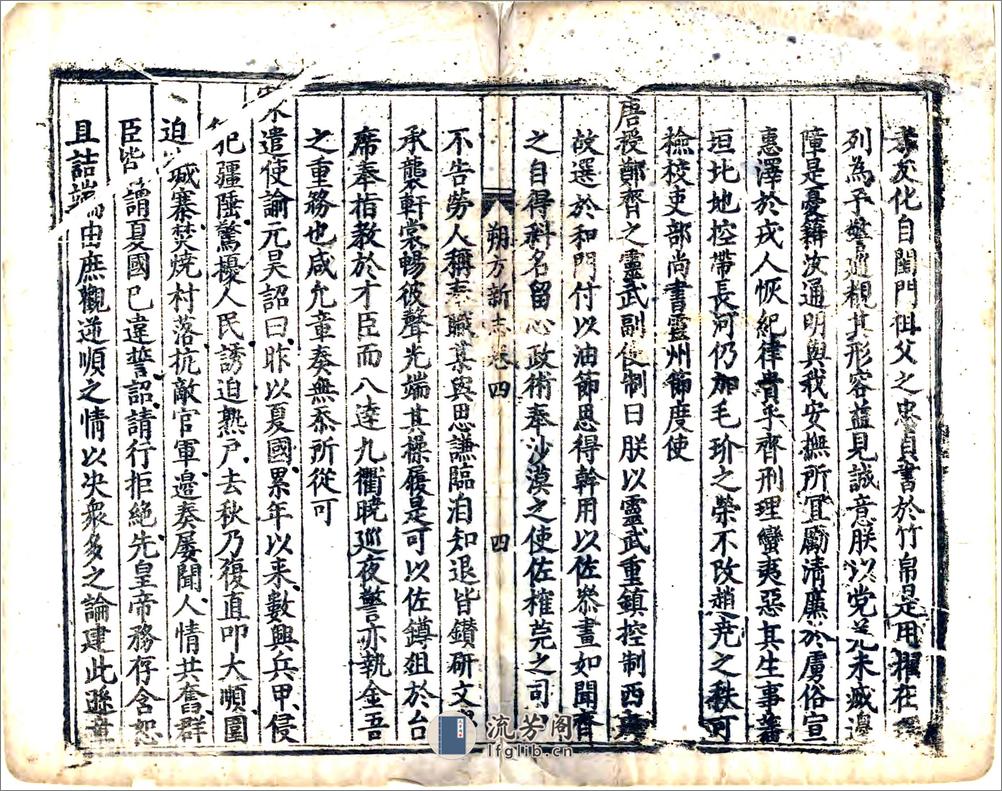 孝友化自閨門祖父之忠貞書於竹帛是用擢在
列為平警巡覩其形容益見誠意朕以党羌未臧邊
障是憂籍汝通明與我安撫所冝勵清廉於虜俗宣
惠澤於戎人恢紀律貴乎齊刑理蠻夷惡其生事蕃
垣北地控帶長河仍加毛玠之榮不改趙尭之秩可
檢校吏部尚書靈州節度使
唐授鄭齊之靈武副使制曰朕以靈武重鎮控制西
故選於和門付以油節思得幹用以佐叅畫如聞齊
之自得科名留心政術奉沙漠之使佐榷莞之司
朔方新志卷四
四
不告勞人稱奉職某與思謙臨洎知退皆鑚研文
承襲軒裳暢彼聲光端其操履是可以佐鐏俎於台
席奉指教於才臣而八逵九衢曉廵夜警亦執金吾
之重務也咸允章奏無忝所從可
宋遣使諭元昊詔曰昨以夏國累年以来數興兵甲侵
犯疆陲驚擾人民誘迫熟户去秋乃復直叩大順圍
迫城寨焚燒村落抗敵官軍邉奏屡聞人情共奮群
臣皆謂夏國已違誓詔請行拒絶先皇帝務存含恕
且詰端由庶觀逆順之情以决衆多之論建此遜章
流芳阁
lfglib.cn